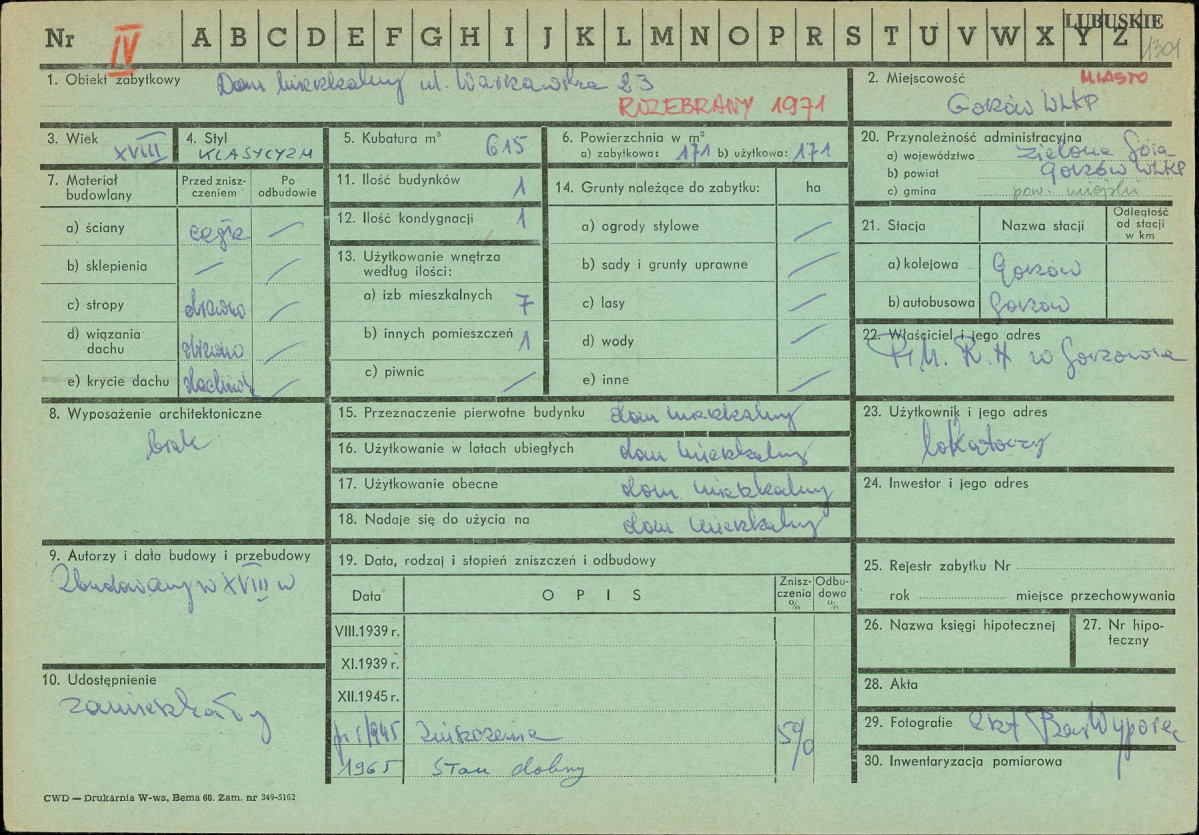 Nr IV A B C D E F G H I J K L M N O P R S T U V W X Y Z
LUBUSKIE
1301
1. Obiekt zabytkowy Dom mieszkalny ul. Warszawska 23
ROZEBRANY 1971
2. Miejscowość MIASTO
Gorzów WLKP
3. Wiek XVIII
4. Styl KLASYCYZM
5. Kubatura m³ 615
6. Powierzchnia w m²
a) zabytkowa: 171 b) użytkowa: 171
7. Materiał budowlany
Przed zniszczeniem
Po odbudowie
a) ściany cegła —
b) sklepienia — —
c) stropy drewno —
d) wiązania dachu drewno —
e) krycie dachu dachówk —
8. Wyposażenie architektoniczne
brak
9. Autorzy i data budowy i przebudowy
Zbudowany w XVIII w
10. Udostępnienie
zamieszkały
11. Ilość budynków 1
12. Ilość kondygnacji 1
13. Użytkowanie wnętrza według ilości:
a) izb mieszkalnych 7
b) innych pomieszczeń 1
c) piwnic —
14. Grunty należące do zabytku: ha
a) ogrody stylowe —
b) sady i grunty uprawne —
c) lasy —
d) wody —
e) inne —
15. Przeznaczenie pierwotne budynku dom mieszkalny
16. Użytkowanie w latach ubiegłych dom mieszkalny
17. Użytkowanie obecne dom mieszkalny
18. Nadaje się do użycia na dom mieszkalny
19. Data, rodzaj i stopień zniszczeń i odbudowy
Data OPIS Zniszczenia % Odbudowa %
VIII.1939 r.
XI.1939 r.
XII.1945 r.
1945 Zniszczenia 5%
1965 Stan dobry
20. Przynależność administracyjna
a) województwo Zielona Góra
b) powiat Gorzów WLKP
c) gmina pow. miejski
21. Stacja Nazwa stacji Odległość od stacji w km
a) kolejowa Gorzów
b) autobusowa Gorzów
22. Właściciel i jego adres
P.M. R.N w Gorzowie
23. Użytkownik i jego adres
lokatorzy
24. Inwestor i jego adres
25. Rejestr zabytku Nr
rok miejsce przechowywania
26. Nazwa księgi hipotecznej
27. Nr hipoteczny
28. Akta
29. Fotografie
30. Inwentaryzacja pomiarowa
CWD — Drukarnia W-wa, Bema 60. Zam. nr 349-5162